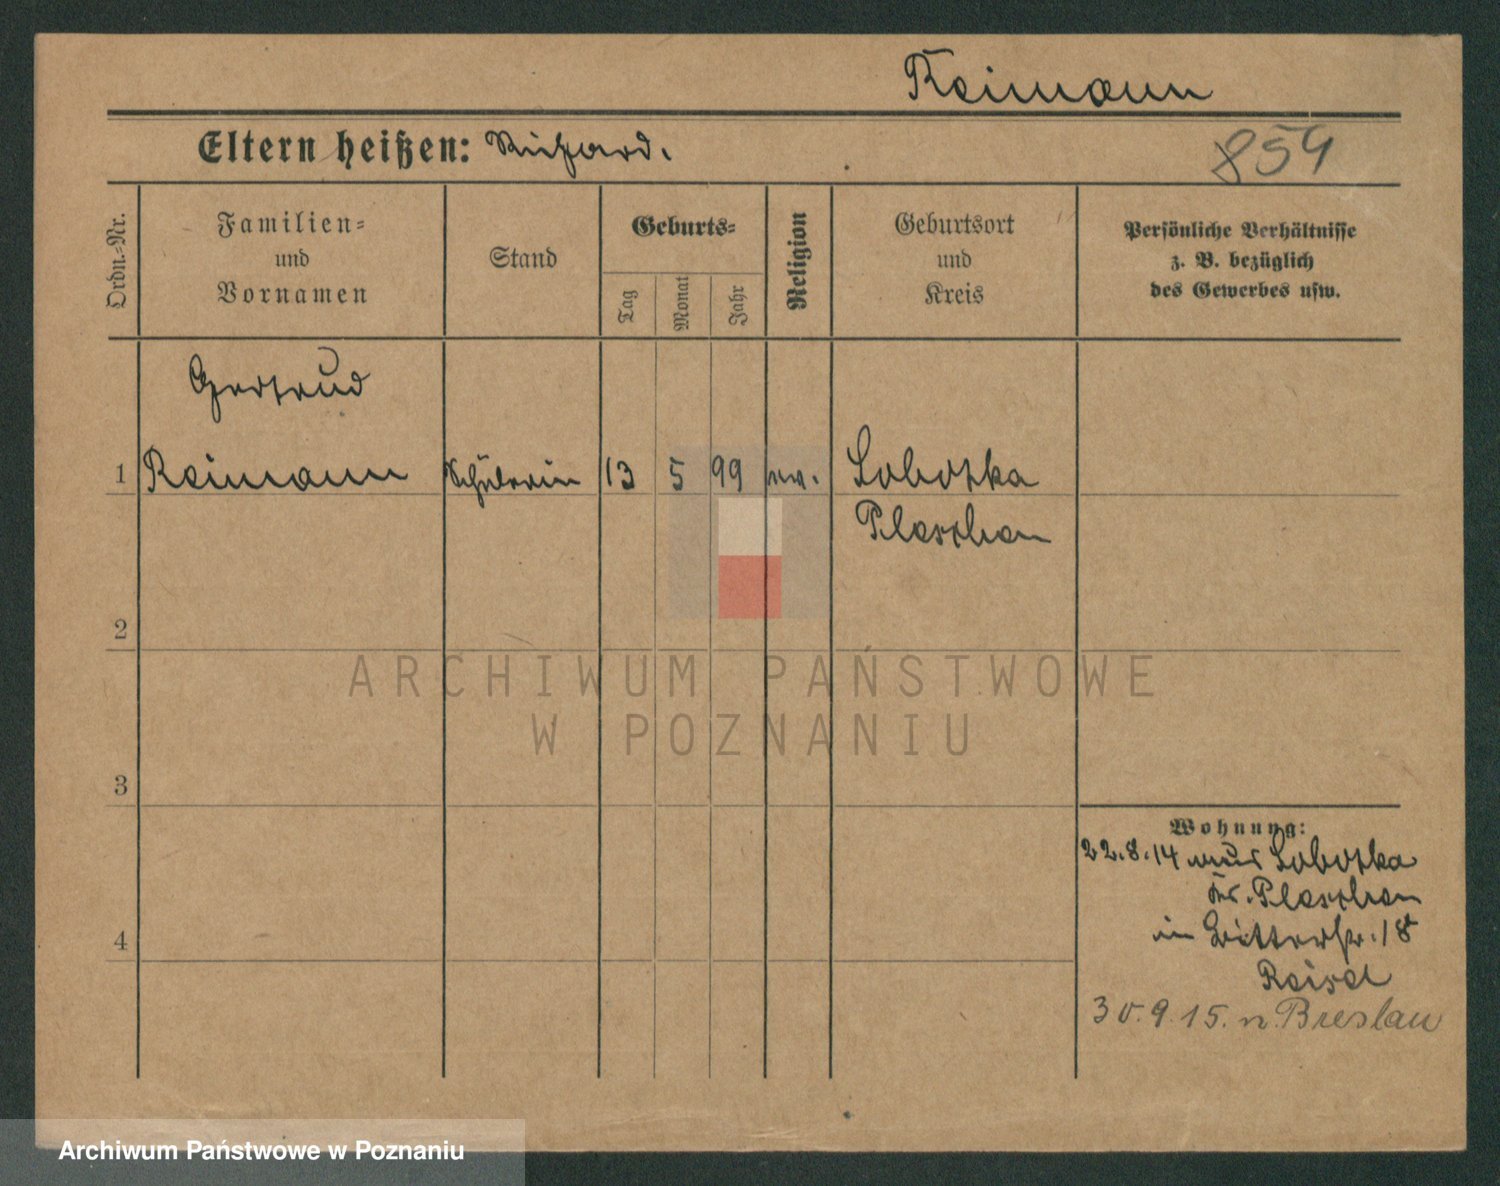 Reimann
Eltern heißen: Richard.
859
Ordn.=Nr.
Familien=
und
Vornamen
Stand
Geburts=
Tag
Monat
Jahr
Religion
Geburtsort
und
Kreis
Persönliche Verhältnisse
z. B. bezüglich
des Gewerbes usw.
Gertrud
1 Reimann Schülerin 13 5 99 ev. Sobotka
Pleschen
2
ARCHIWUM PAŃSTWOWE
W POZNANIU
3
Wohnung:
22.8.14 aus Sobotka
Kr. Pleschen
in Ritterstr. 18
4
30.9.15. n. Breslau
Archiwum Państwowe w Poznaniu